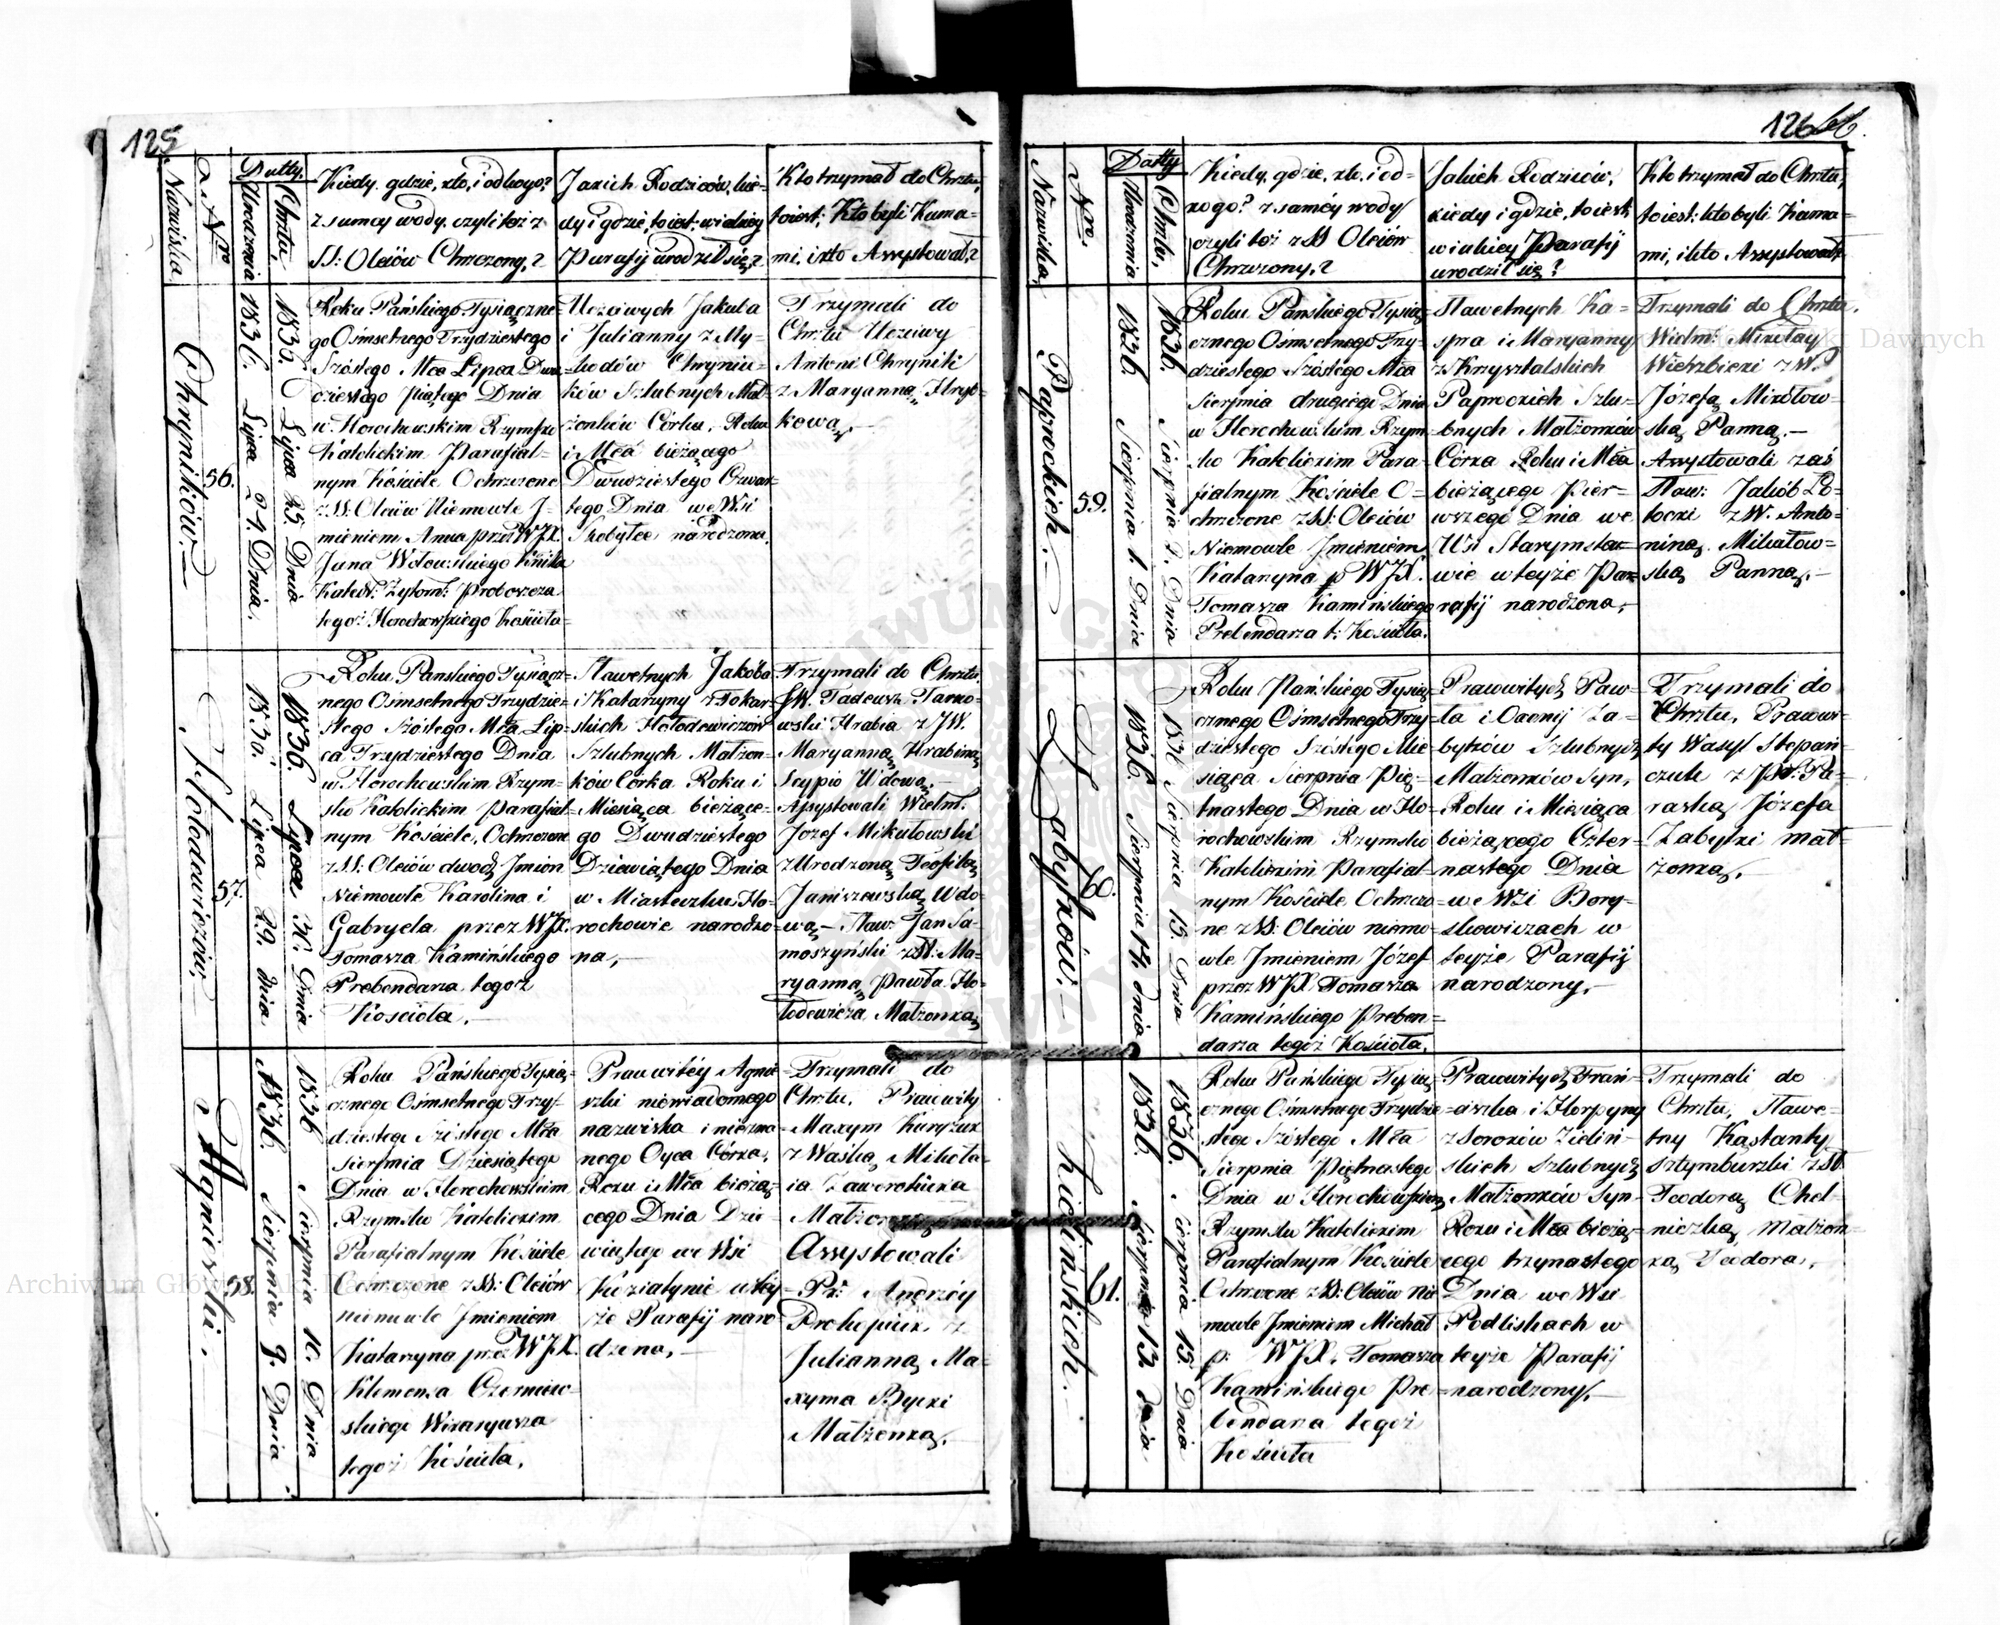 125
Nazwiska
Nro
Datty.
Urodzenia
Chrztu,
Kiedy, gdzie, kto, i od kogo?
z samey wody, czyli też z
SS: Oleiów Chrzczony,?
Jakich Rodziców, kie-
dy i gdzie, to iest: w iakiey
Parafij urodził się,?
Kto trzymał do Chrztu,
to iest: Kto byli Kuma-
mi, i kto Assystował,?
Chryników.
56.
1836. Lipca 24. Dnia.
1836. Lipca 25. Dnia
Roku Pańskiego Tysiączne-
go Ośmsetnego Trzydziestego
Szóstego Mca Lipca Dwu-
dziestego piątego Dnia
w Horochowskim Rzymsko
Katolickim Parafial-
nym Kościele Ochrzczone
z SS: Oleiów Niemowle I-
mieniem Anna przez WJX.
Jana Wołowskiego
Kated: Żytom: Proboszcza
tegoż Horochowskiego Kościoła-
Uczciwych Jakuba
i Julianny z My-
chodów Chryni-
ków Szlubnych Mał-
żonków Córka, Roku
i Mca bieżącego
Dwudziestego Czwar-
tego Dnia we Wsi
Skobyłce narodzona.
Trzymali do
Chrztu Uczciwy
Antoni Chrynik
z Maryanną Hryb-
kową,-
Hołodewiczów,
57.
1836. Lipca 29. Dnia
1836. Lipca. 30. Dnia
Roku Panskiego Tysiącz-
nego Ośmsetnego Trzydzie-
stego Szóstego Mca Lip-
ca Trzydziestego Dnia
w Horochowskim Rzym-
sko Katolickim Parafial-
nym Kościele, Ochrzczone
z SS: Oleiów dwoch Imion
Niemowle Karolina i
Gabryela przez WJX.
Tomasza Kamińskiego
Prebendarza tegoż
Kościoła,-
Sławetnych Jakóba
i Katarzyny z Tokar-
skich Hołodewiczów
Szlubnych Małżon-
ków Córka Roku i
Miesiąca bieżące-
go Dwudziestego
Dziewiątego Dnia
w Miasteczku Ho-
rochowie narodzo-
na,-
Trzymali do Chrztu
JW. Tadeusz Tarno-
wski Hrabia z JW.
Maryanną Hrabiną
Scypio Wdową,-
Assystowali Wielm:
Jozef Mikułowski
z Urodzoną Teofilą
Janiszewską Wdo-
wą- Sław: Jan Sa-
moszyński z St: Ma-
ryanną Pawła Ho-
łodewicza Małżonką,
Agnieszki.
58.
1836. Sierpnia 9. Dnia
1836 Sierpnia 10. Dnia
Roku Pańskiego Tysią-
cznego Ośmsetnego Trzy-
dziestego Szóstego Mca
Sierpnia Dziesiątego
Dnia w Horochowskim
Rzymsko Katolickim
Parafialnym Kościele
Ochrzczone z SS: Oleiów
niemowle Imieniem
Katarzyna przez WJX.
Klemensa Czerniew-
skiego Wikaryusza
tegoż Kościoła,
Prawitéy Agnie-
szki niewiadomego
nazwiska i niezna-
nego Oyca Córka,
Roku i Mca bieżą-
cego Dnia Dzie-
wiątego we Wsi
Koziatynie w tey-
że Parafij naro
dzona,-
Trzymali do
Chrztu, Prawity
Maxym
z Waśką Mikoła-
ia
Małżonką
Assystowali
Pr: Andrzéy
Prokopiuk z
Julianną Ma-
xyma
Małżonką,-
126
Nazwiska,
Nro.
Datty
Urodzenia
Chrztu,
Kiedy, gdzie, kto, i od-
kogo? z saméy wody
czyli też z SS Oleiów
Chrzczony,?
Jakich Rodziców,
kiedy i gdzie, to iest:
w iakiey Parafij
urodził się?
Kto trzymał do Chrztu,
to iest: kto byli Kuma-
mi, i kto Assystował?
Paprockich.
59.
1836. Sierpnia 1. Dnia
1836. Sierpnia 2. Dnia
Roku Pańskiego Tysią-
cznego Ośmsetnego Trzy-
dziestego Szóstego Mca
Sierpnia drugiego Dnia
w Horochowskim Rzym
sko Katolickim Para-
fialnym Kościele O-
chrzczone z SS: Oleiów
Niemowle Imieniem
Katarzyna p WJX.
Tomasza Kamińskiego
Prebendarza t: Kościoła.
Sławetnych Ka-
spra i Maryanny
z Krysztalskich
Paprockich Szlu-
bnych Małżonków
Córka Roku i Mca
bieżącego Pier-
wszego Dnia we
Wsi Starymsta-
wie w teyże Pa-
rafij narodzona,-
Trzymali do Chrztu.
Wielm: Mikołay
Wierzbicki z W.
Józefą Mikołow-
ską Panną.-
Assystowali zaś
Sław: Jakób Po-
tocki z W. Anto-
niną Mikułow-
ską Panną,-
Zabyłków.-
60.
1836. Sierpnia 14. dnia
1836 Sierpnia 15. Dnia
Roku Pańskiego Tysią-
cznego Ośmsetnego Trzy-
dziestego Szóstego Mie-
siąca Sierpnia Pię-
tnastego Dnia w Ho-
rochowskim Rzymsko
Katolickim Parafial
nym Kościele Ochrzczo-
ne z SS: Oleiów niemo-
wle Imieniem Józef
przez WJX Tomasza
Kamińskiego Preben-
darza tegoż Kościoła,
Prawowitych Paw-
ła i Za-
byłków Szlubnych
Małżonków Syn,
Roku i Miesiąca
bieżącego Czter-
nastego Dnia
we Wsi Bory-
skowiczach w
teyże Parafij
narodzony,-
Trzymali do
Chrztu, Prawowi-
ty Wasyl Stepań-
czuk z Pr: Pa-
raską Józefa
Zabyłki Mał-
żonką,
Zielinskich.
61.
1836. Sierpnia 13 dnia
1836. Sierpnia 15. Dnia
Roku Pańskiego Tysią
cznego Ośmsetnego Trzydzie-
stego Szóstego Mca
Sierpnia Piętnastego
Dnia w Horochowskim
Rzymsko Katolickim
Parafialnym Kościele
Ochrzczone z SS: Oleiów Nie
mowle Imieniem Michał
p: WJX, Tomasza
Kamińskiego Pre-
bendarza tegoż
Kościoła
Prawowitych Fran-
ciszka i Horpyny
z Soroków Zieliń-
skich Szlubnych
Małżonków Syn-
Roku i Mca bieżą-
cego trzynastego
Dnia we Wsi
Podliskach w
teyże Parafij
narodzony,-
Trzymali do
Chrztu, Sławe-
tny Kastanty
Sztymburski z St
Teodorą Cheł-
niczką Małżon-
ką Teodora,-